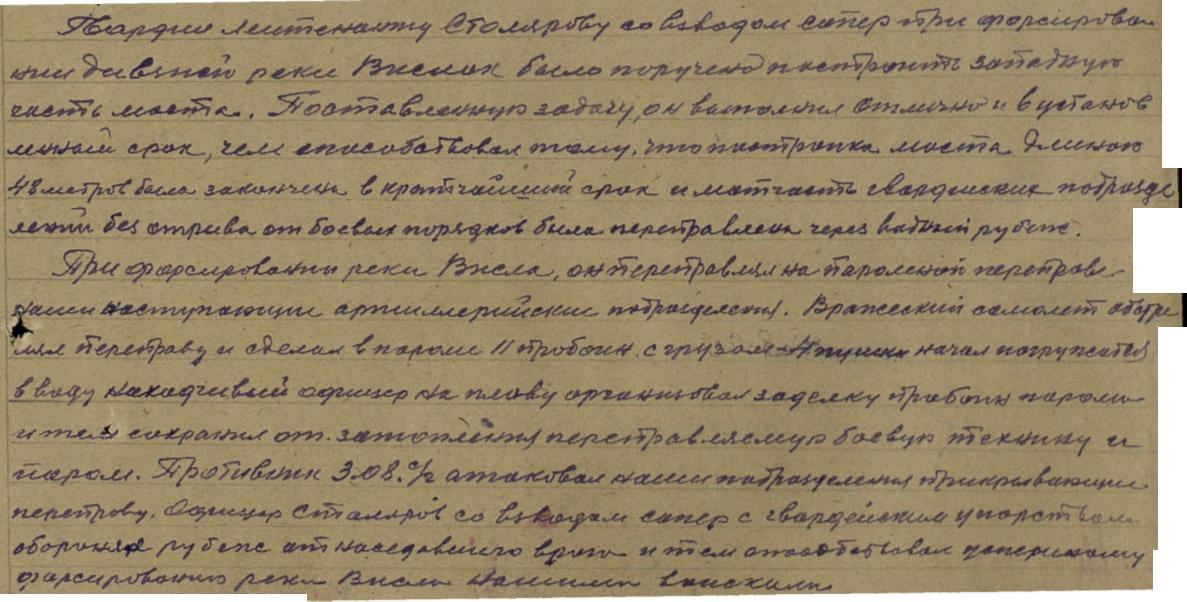 Гвардии лейтенанту Столярову со взводом сапер при форсирова
нии реки Вислок было поручено построить западную
часть моста. Поставленную задачу, он выполнил отлично и в установ
леный срок, чем способствовал тому, что постройка моста длиною
48 метров была закончена в кратчайший срок и матчасть гвардейских подразде
лений без отрыва от боевых порядков была переправлена через водный рубеж.
При форсировании реки Висла, он переправлял на паромной переправе
наши наступающие артиллерийские подразделения. Вражеский самолет обстре
лял переправу и сделал в пароме 11 пробоин. с грузом начал погружатся
в воду находчивый офицер на плаву организовал заделку пробоин парома
и тем сохранил от затопления переправляемую боевую технику и
паром. Противник 3.08. с/г атаковал наши подразделения прикрывающие
переправу. Офицер Столяров со взводом сапер с гвардейским упорством
оборонял рубеж от наседавшего врага и тем способствовал успешному
форсированию реки Висла нашими войсками